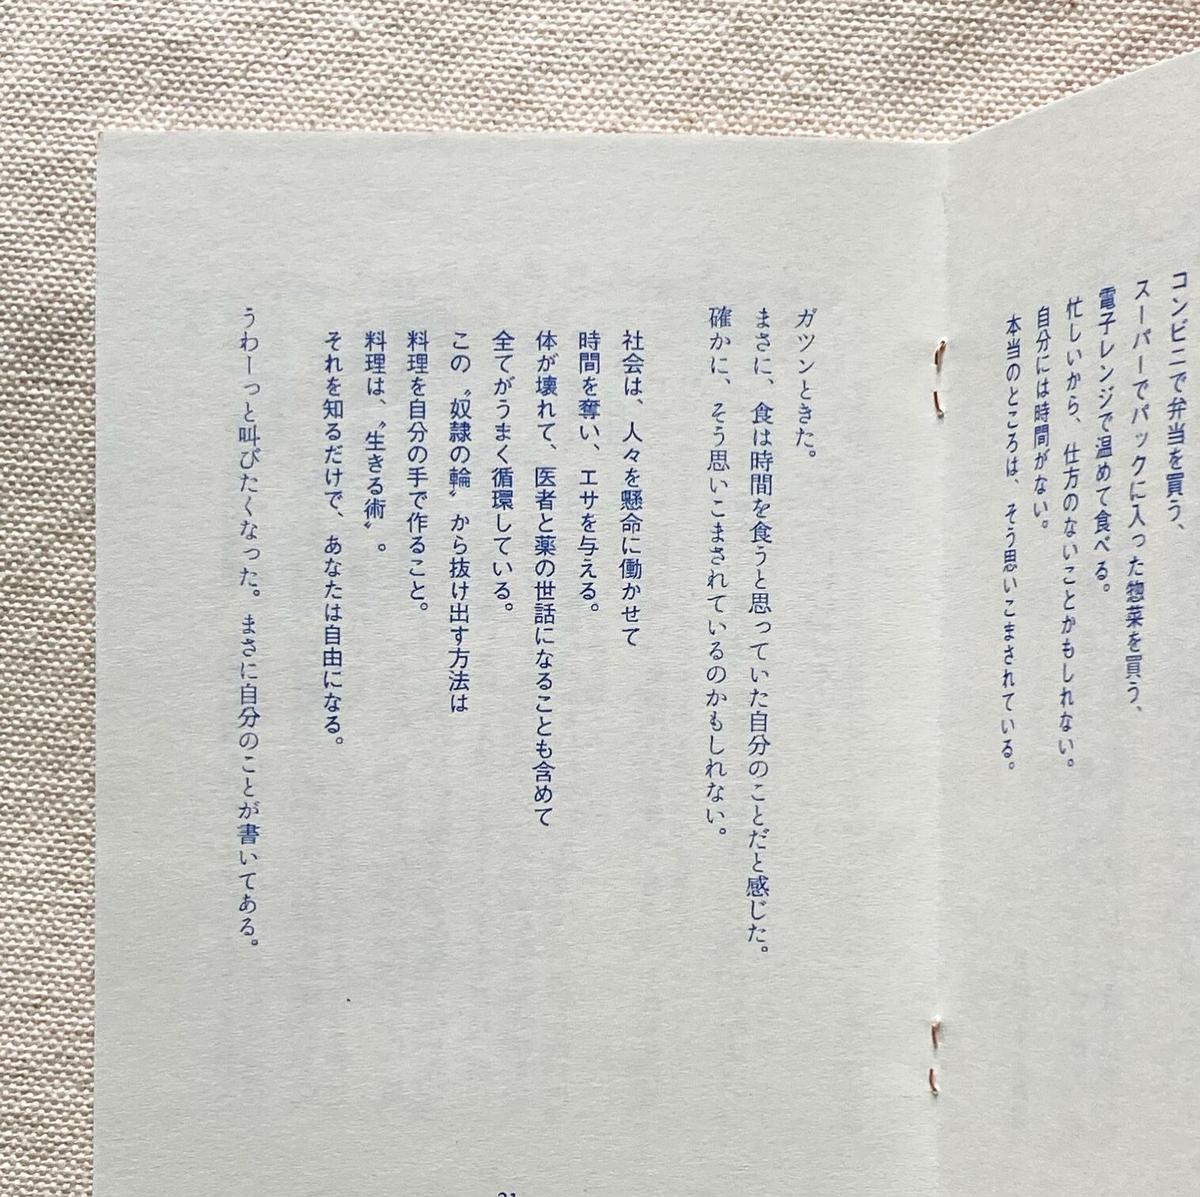 コンビニで弁当を買う、
スーパーでパックに入った惣菜を買う、
電子レンジで温めて食べる。
忙しいから、仕方のないことかもしれない。
自分には時間がない。
本当のところは、そう思いこまされている。
ガツンときた。
まさに、食は時間を食うと思っていた自分のことだと感じた。
確かに、そう思いこまされているのかもしれない。
社会は、人々を懸命に働かせて
時間を奪い、エサを与える。
体が壊れて、医者と薬の世話になることも含めて
全てがうまく循環している。
この〝奴隷の輪〟から抜け出す方法は
料理を自分の手で作ること。
料理は、〝生きる術〟。
それを知るだけで、あなたは自由になる。
うわーっと叫びたくなった。まさに自分のことが書いてある。
21